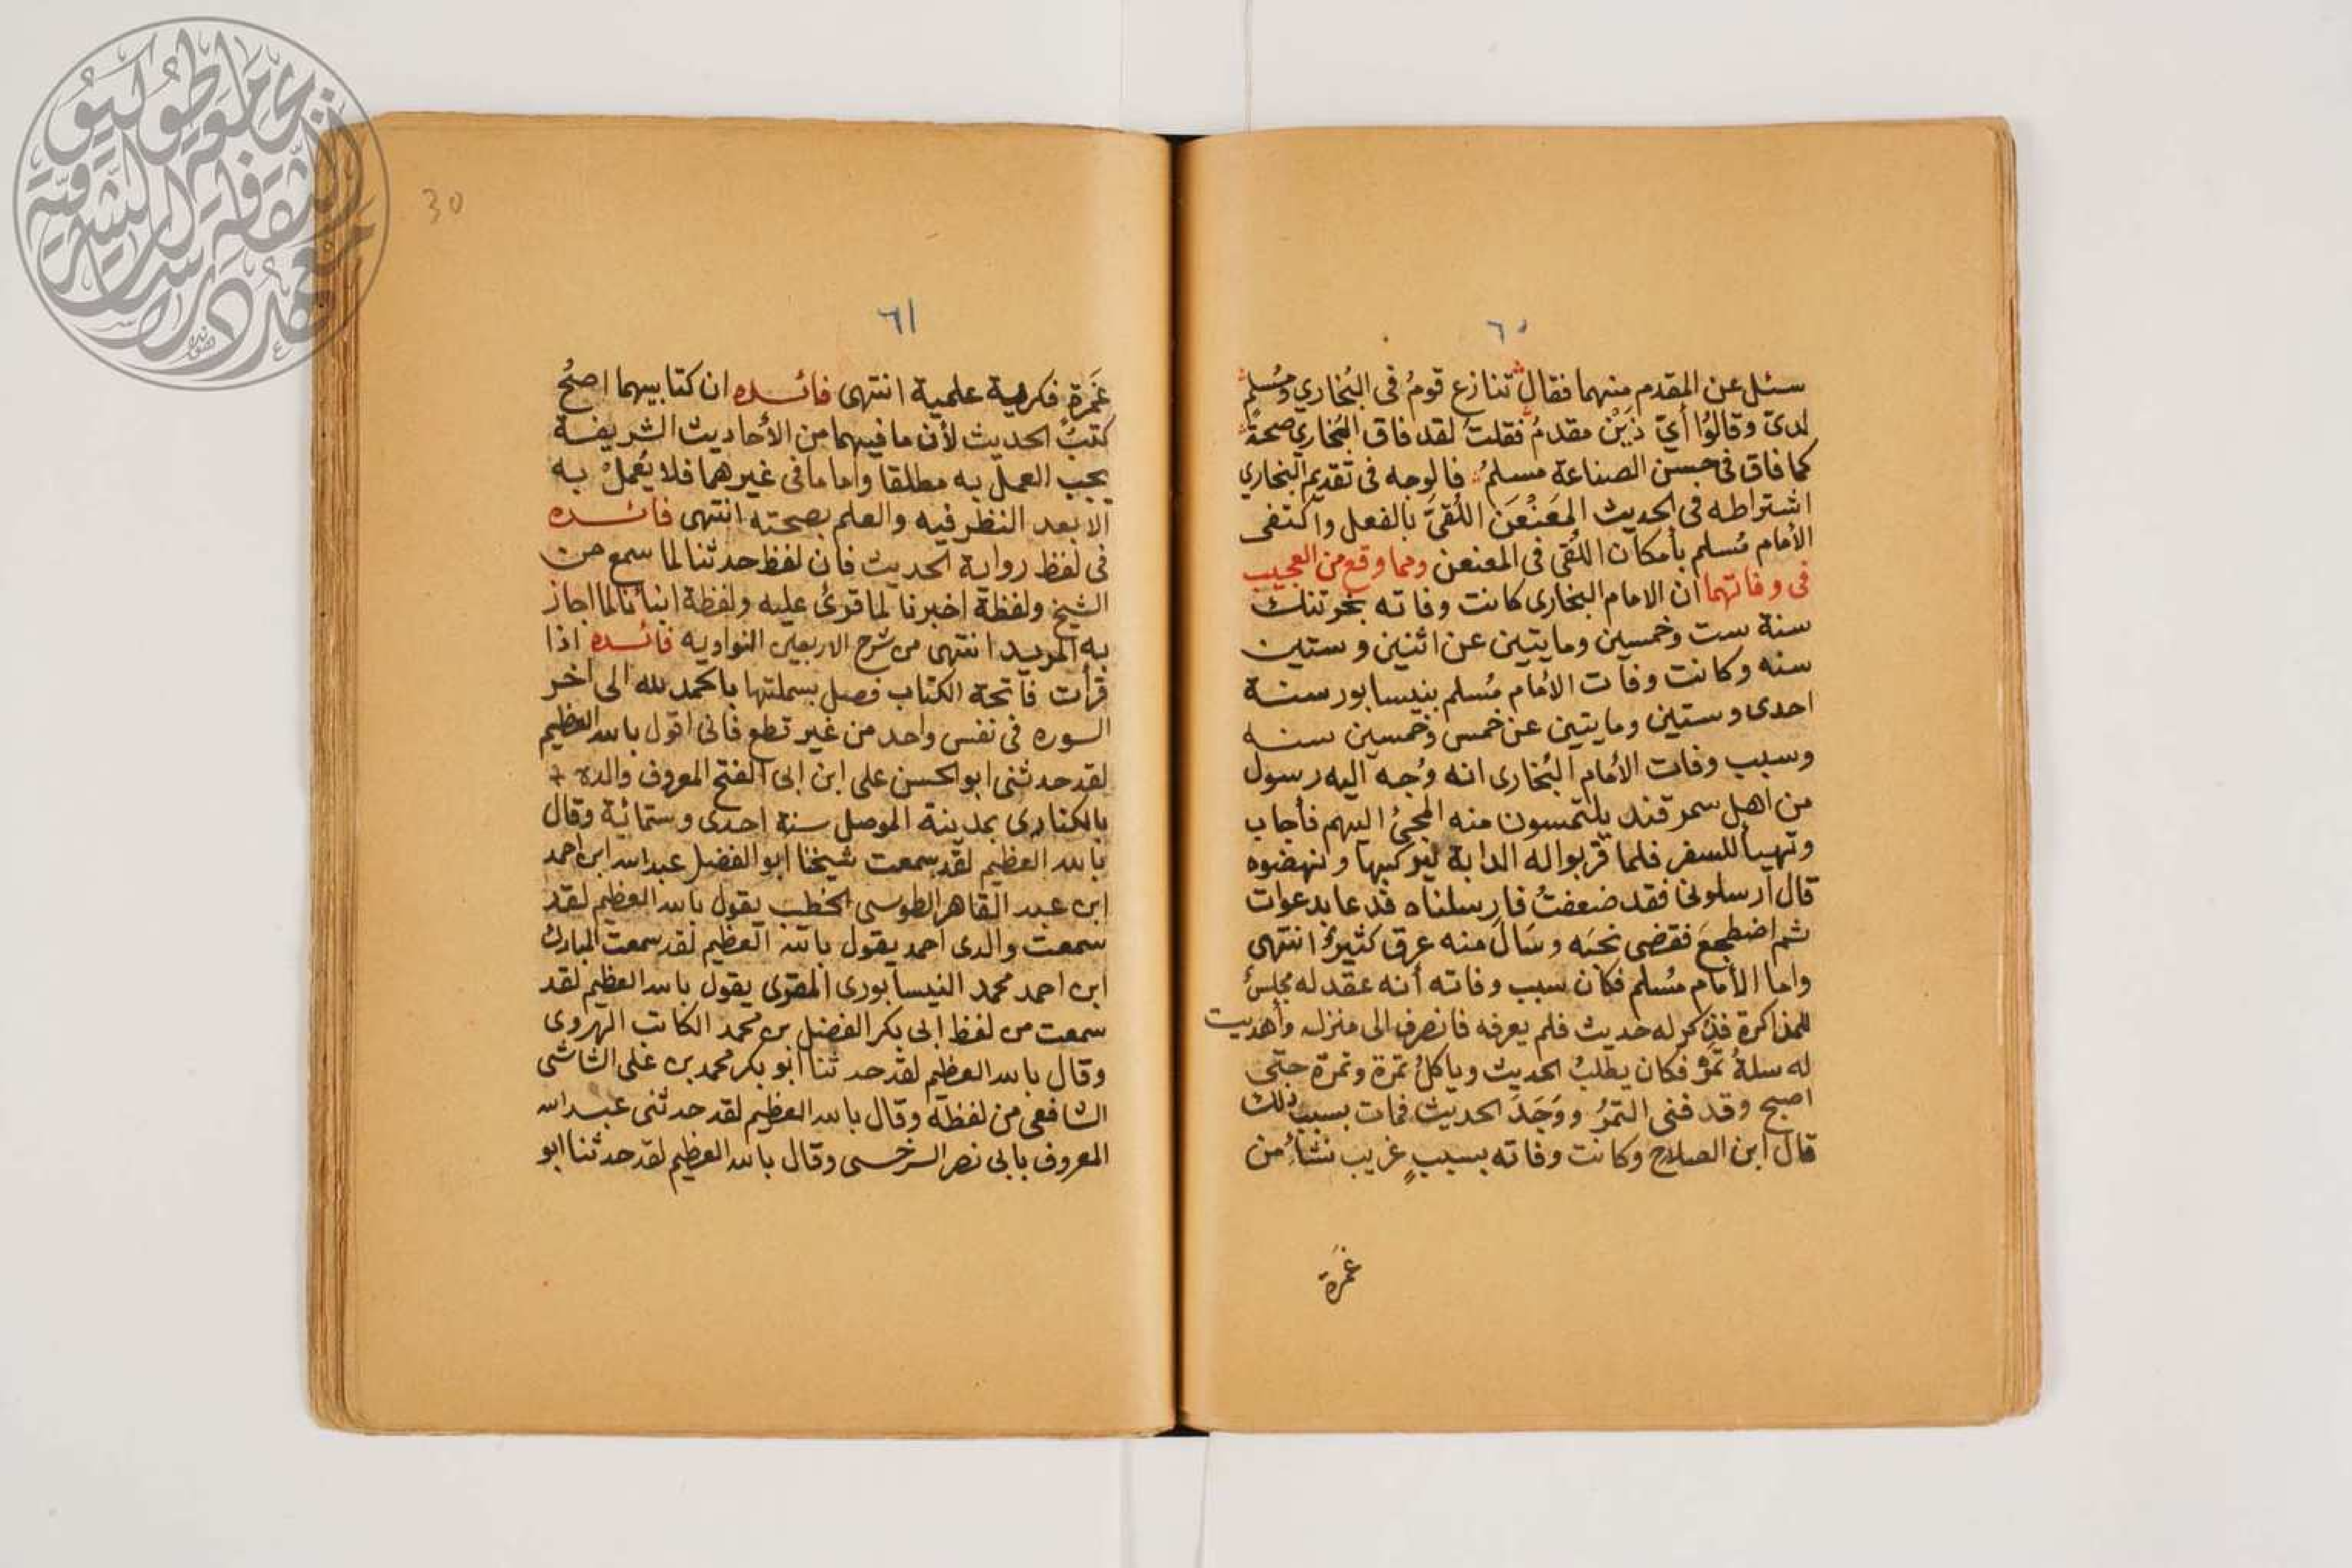 ٦٠
سئل عن المقدم منهما فقال تنازع قومُ فى البُخاري ومُسلم
لدىّ وقالوُا أىّ ذَيَنْ مقدمُ فقلتُ لقد فاق البُخاري صحةً
كما فاق فى حسن الصناعة مسلمُ فالوجه فى تقديم البخاري
اشتراطه فى الحديث المعَنْعَن اللُقىَّ بالفعل واكتفى
الأمام مُسلم بأمكان اللُقى فى المعنعن ومما وقع من العجيب
فى وفاتهما ان الامام البخارى كانت وفاته بخرتنك
سنة ست وخمسين ومايتين عن اثنين وستين
سنه وكانت وفات الأمام مُسلم بنيسابور سنة
احدى وستين ومايتين عن خمس وخمسين سنه
وسبب وفات الأمام البُخارى انه وُجه اليه رسول
من اهل سمرقند يلتمسون منه المجئ اليهم فأجاب
وتهيأ للسفر فلما قربوا له الدابة ليركبها ونهضوه
قال ارسلونى فقد ضعفتُ فارسلناه فدعا بدعوات
ثم اضطجعَ فقضى نحبَه وسَالَ منه عرق كثيرُ انتهى
واما الأمام مُسلم فكان سبب وفاته أنه عقد له مجلسُ
للمذاكرة فذكر له حديث فلم يعرفه فانصرف الى منزله وأهديت
له سلةُ تمرْ فكان يطلبُ الحديث وياكلُ تمرة وتمرة حتى
اصبح وقد فنى التمرُ ووَجَدَ الحديث فمات بسبب ذلك
قال ابن الصلاح وكانت وفاته بسببٍ غريب نشأُ من
غمَرة
30
٦١
غَمرَة فكرية علمية انتهى فائده ان كتابيهما اصحُ
كتبُ الحديث لأن ما فيهما من الأحاديث الشريفة
يجب العمل به مطلقا واما ما فى غيرهما فلا يُعملْ به
الا بعد النظر فيه والعلم بصحته انتهى فائده
فى لفظ رواية الحديث فان لفظ حدثنا لما سمع من
الشيخ ولفظة اخبرنا لما قرئ عليه ولفظة انبأنا لما اجاز
به المريد انتهى من شرح الاربعين النواويه فائده اذا
قرأت فاتحة الكتاب فصل بسملتها بالحمد لله الى اخر
السوره فى نفس واحد من غير قطع فانى اقول بالله العظيم
لقد حدثنى ابو الحسن على ابن ابى الفتح المعروف والده
بالكنارى بمدينة الموصل سنة احدى وستمائية وقال
بالله العظيم لقد سمعت شيخنا ابو الفضل عبد الله ابن احمد
ابن عبد القاهر الطوسى الخطيب يقول بالله العظيم لقد
سمعت والدى احمد يقول بالله العظيم لقد سمعت المبارك
ابن احمد محمد النيسابورى المقرى يقول بالله العظيم لقد
سمعت من لفظ ابى بكر الفضل بن محمد الكاتب الهروى
وقال بالله العظيم لقد حدثنا ابو بكر محمد بن على الشاشى
الشافعى من لفظه وقال بالله العظيم لقد حدثنى عبد الله
المعروف بابى نصر السرخسى وقال بالله العظيم لقد حدثنا ابو